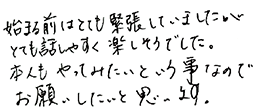 始まる前はとても緊張していましたが
とても話しやすく楽しそうでした。
本人もやってみたいという事なので
お願いしたいと思います。